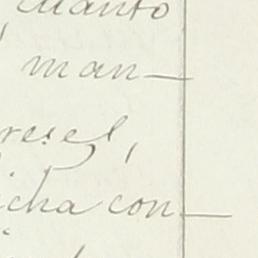 cuanto
man—
resel,
icha con—